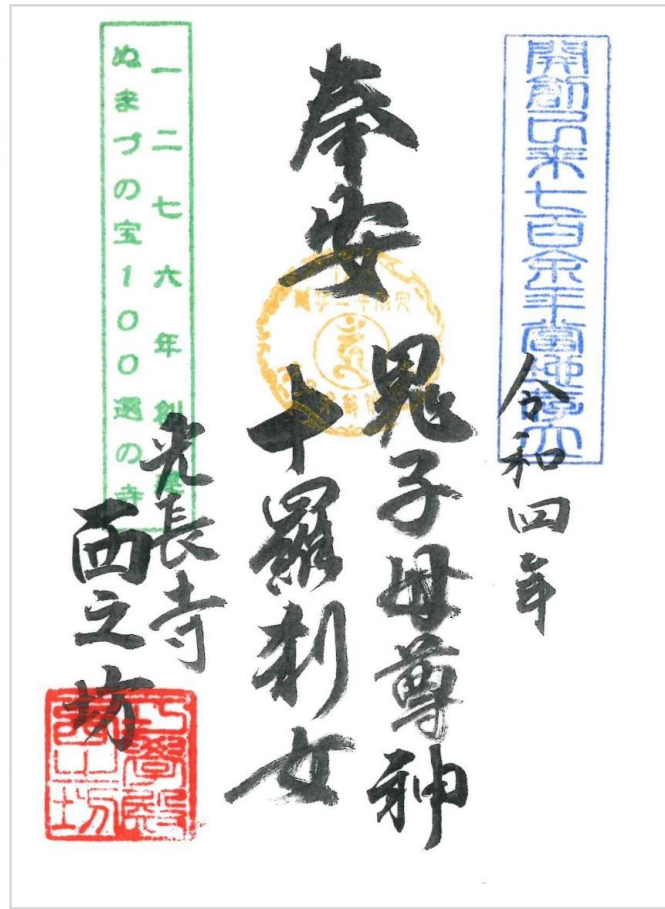 開創以来七百余年
令和四年
奉安
鬼子母尊神
十羅刹女
一二七六年創
ぬまづの宝100選の寺
光長寺
西之坊